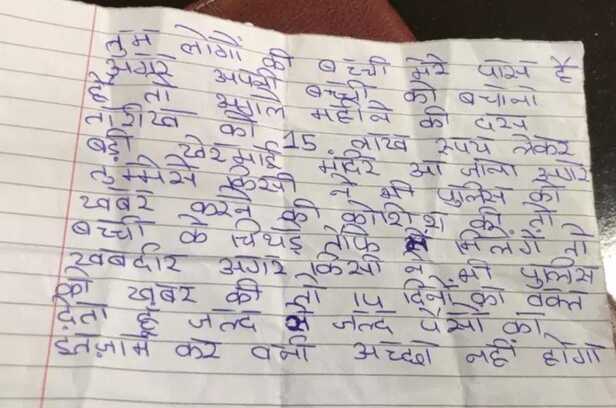 तुम लोगों की बच्ची मेरे पास है
अगर अपनी बच्ची को बचाना
है तो अगले महीने की दस
तारीख को 15 लाख रूपय लेकर
बड़ी खेरमाई मंदिर आ जाना अगर
तुममेसे किसी ने भी पुलिस को
खबर करने की कोशिश की तो
बच्ची के चिथड़े तोफे मे मिलेंगे तो
खबदार अगर किसी ने भी पुलिस
को खबर की तो 14 दिनों का वक्त
देता हूँ जल्द से जल्द पैसो का
इंतजाम कर वर्ना अच्छा नही होगा